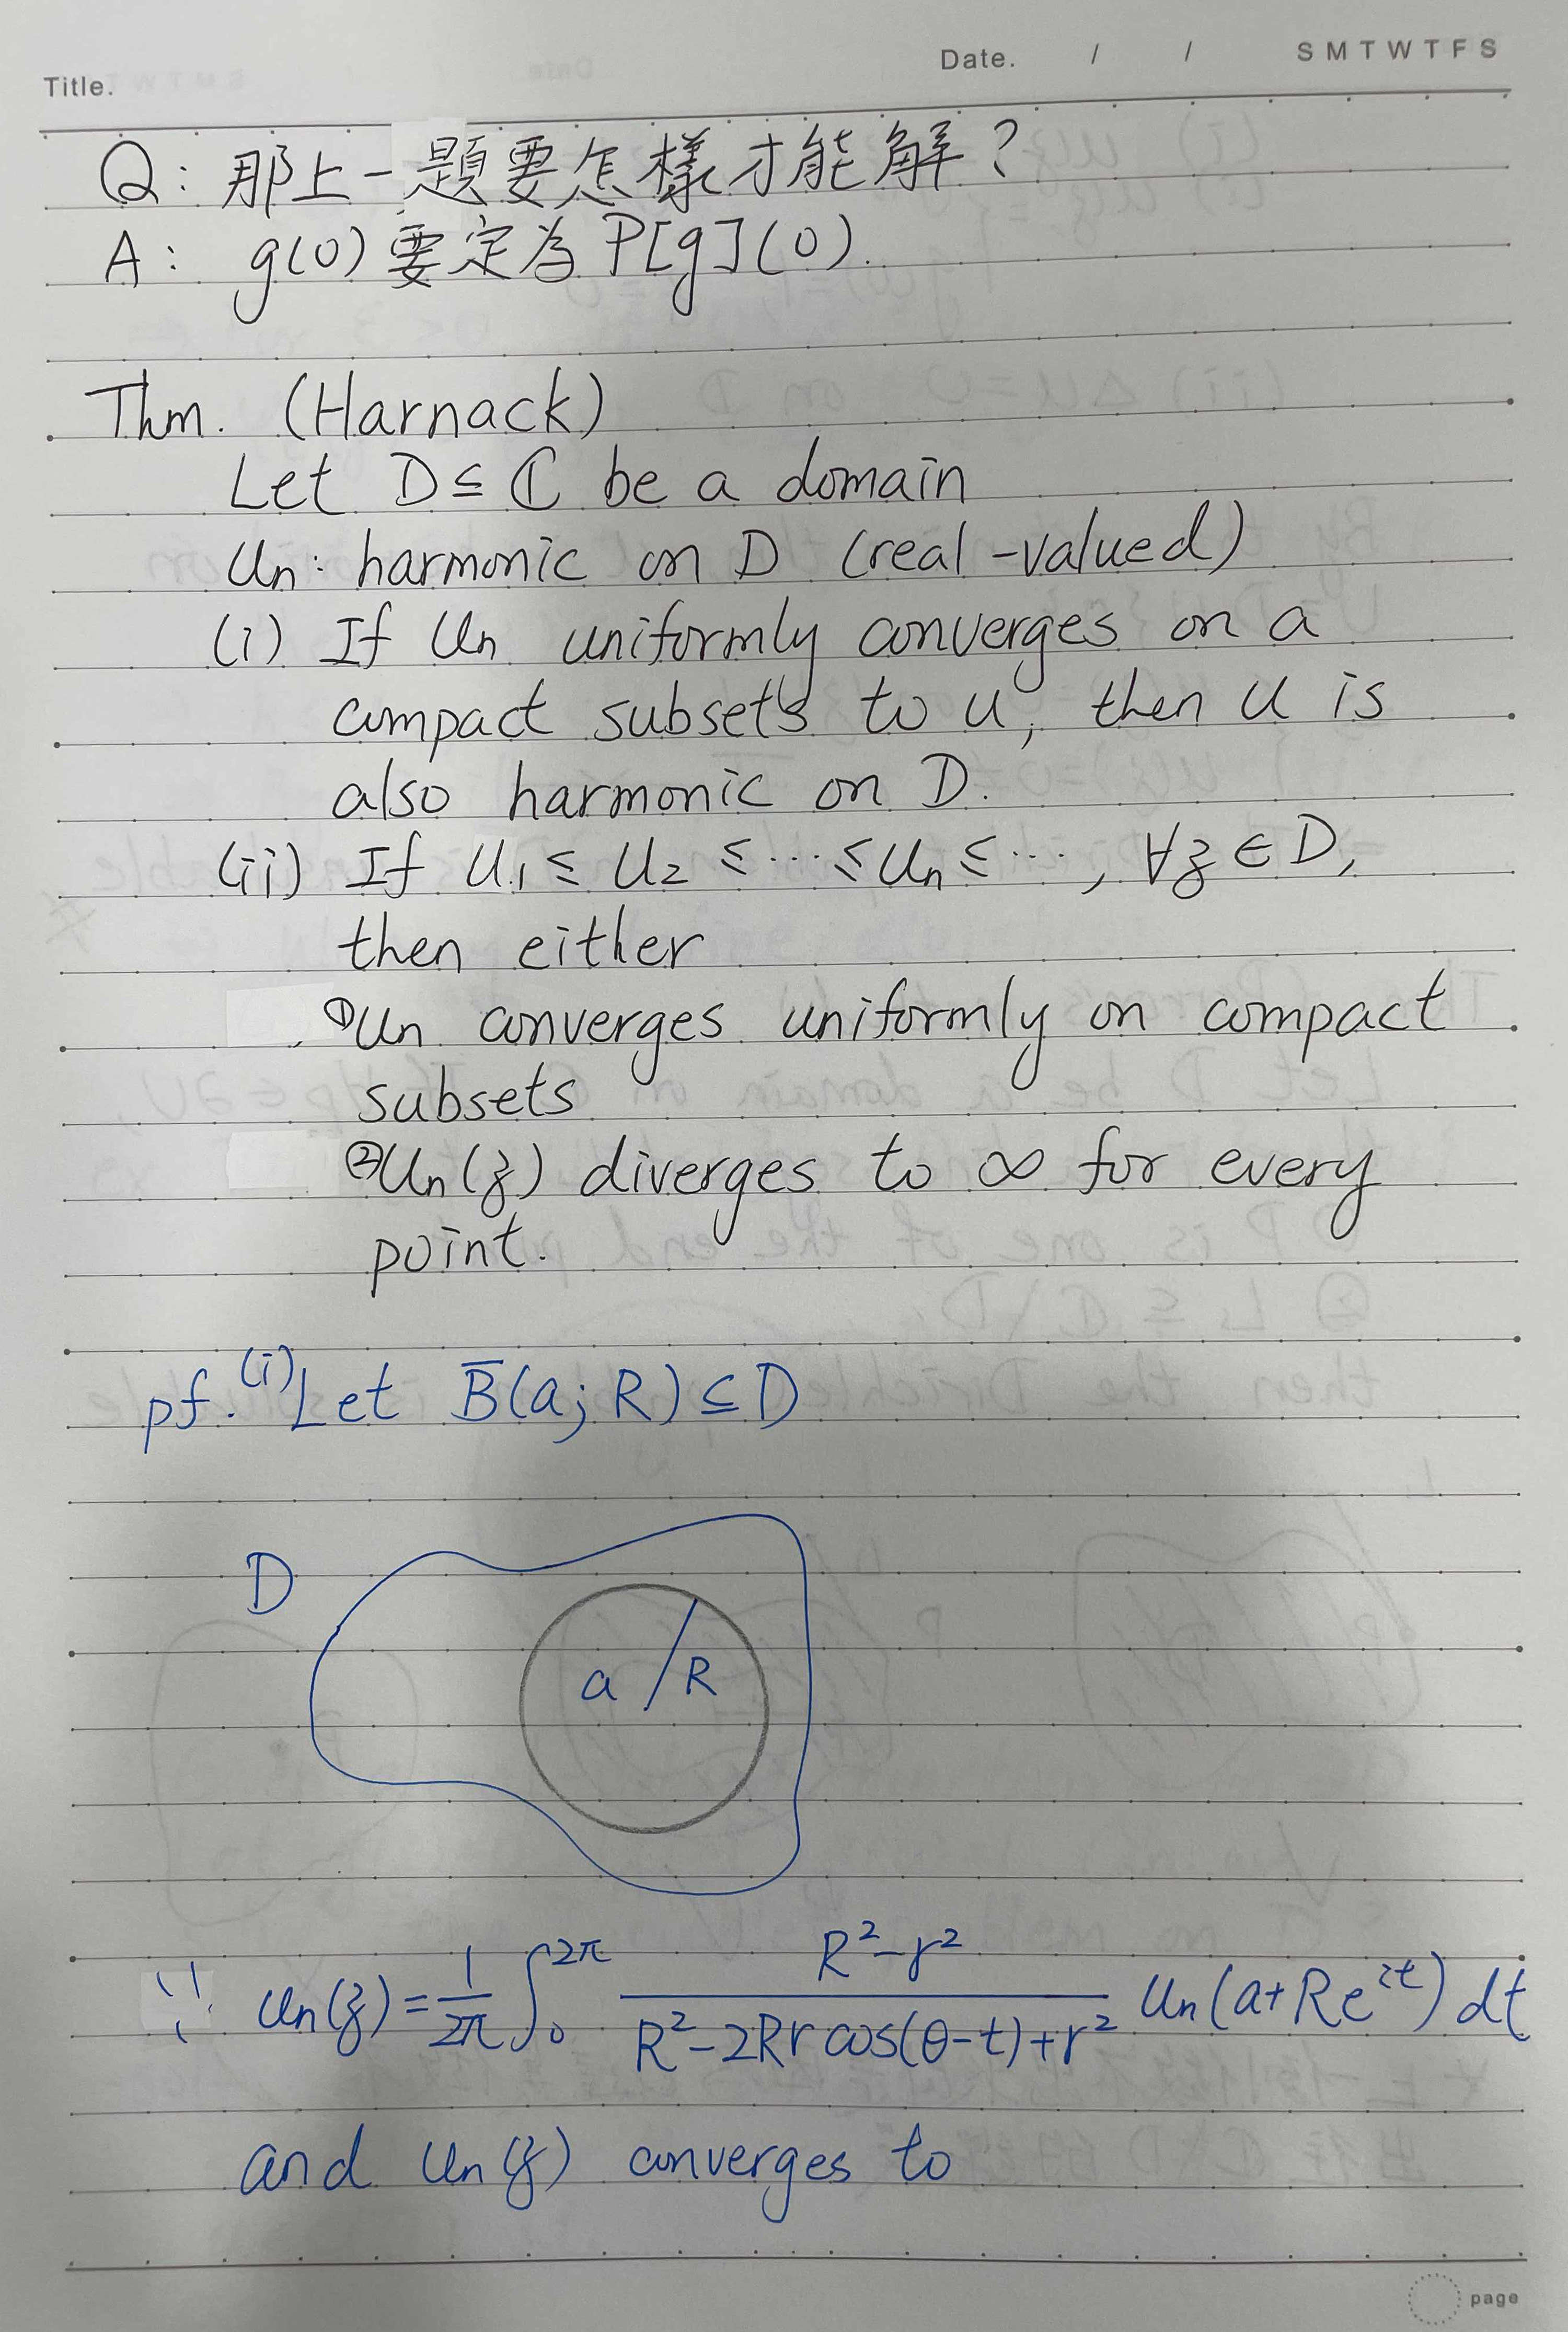 Title.
Date. / / S M T W T F S
Q: 那上一題要怎樣才能解?
A: g(0)要定為P[g](0).
Thm. (Harnack)
Let D ⊆ ℂ be a domain
Un: harmonic on D (real-valued)
(i) If Un uniformly converges on a
compact subsets to u, then u is
also harmonic on D.
(ii) If U₁ ≤ U₂ ≤ ⋯ ≤ Un ≤ ⋯, ∀z ∈ D,
then either
①Un converges uniformly on compact
subsets
②Un(z) diverges to ∞ for every
point.
pf. (i) Let B̅(a; R) ⊆ D
D
a R
∵ Un(z) = 1/2π ∫₀^2π (R²-r²)/(R²-2Rr cos(θ-t)+r²) Un(a+Re^it) dt
and Un(z) converges to
page